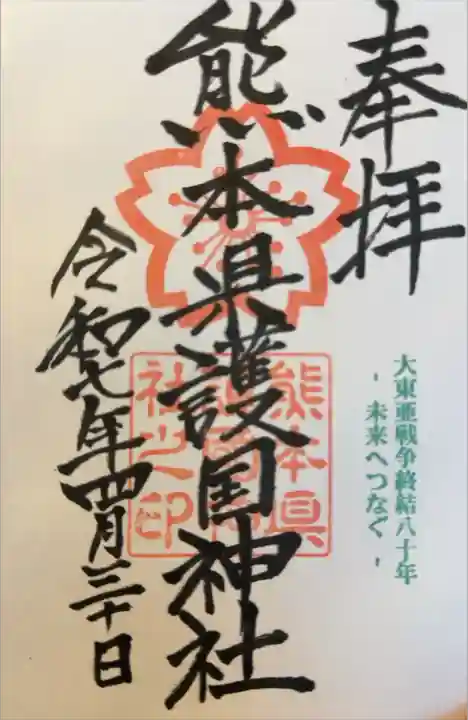 奉拝
大東亜戦争終結八十年
- 未来へつなぐ -
熊本県護国神社
熊本県
護國神
社之印
令和七年四月三十日